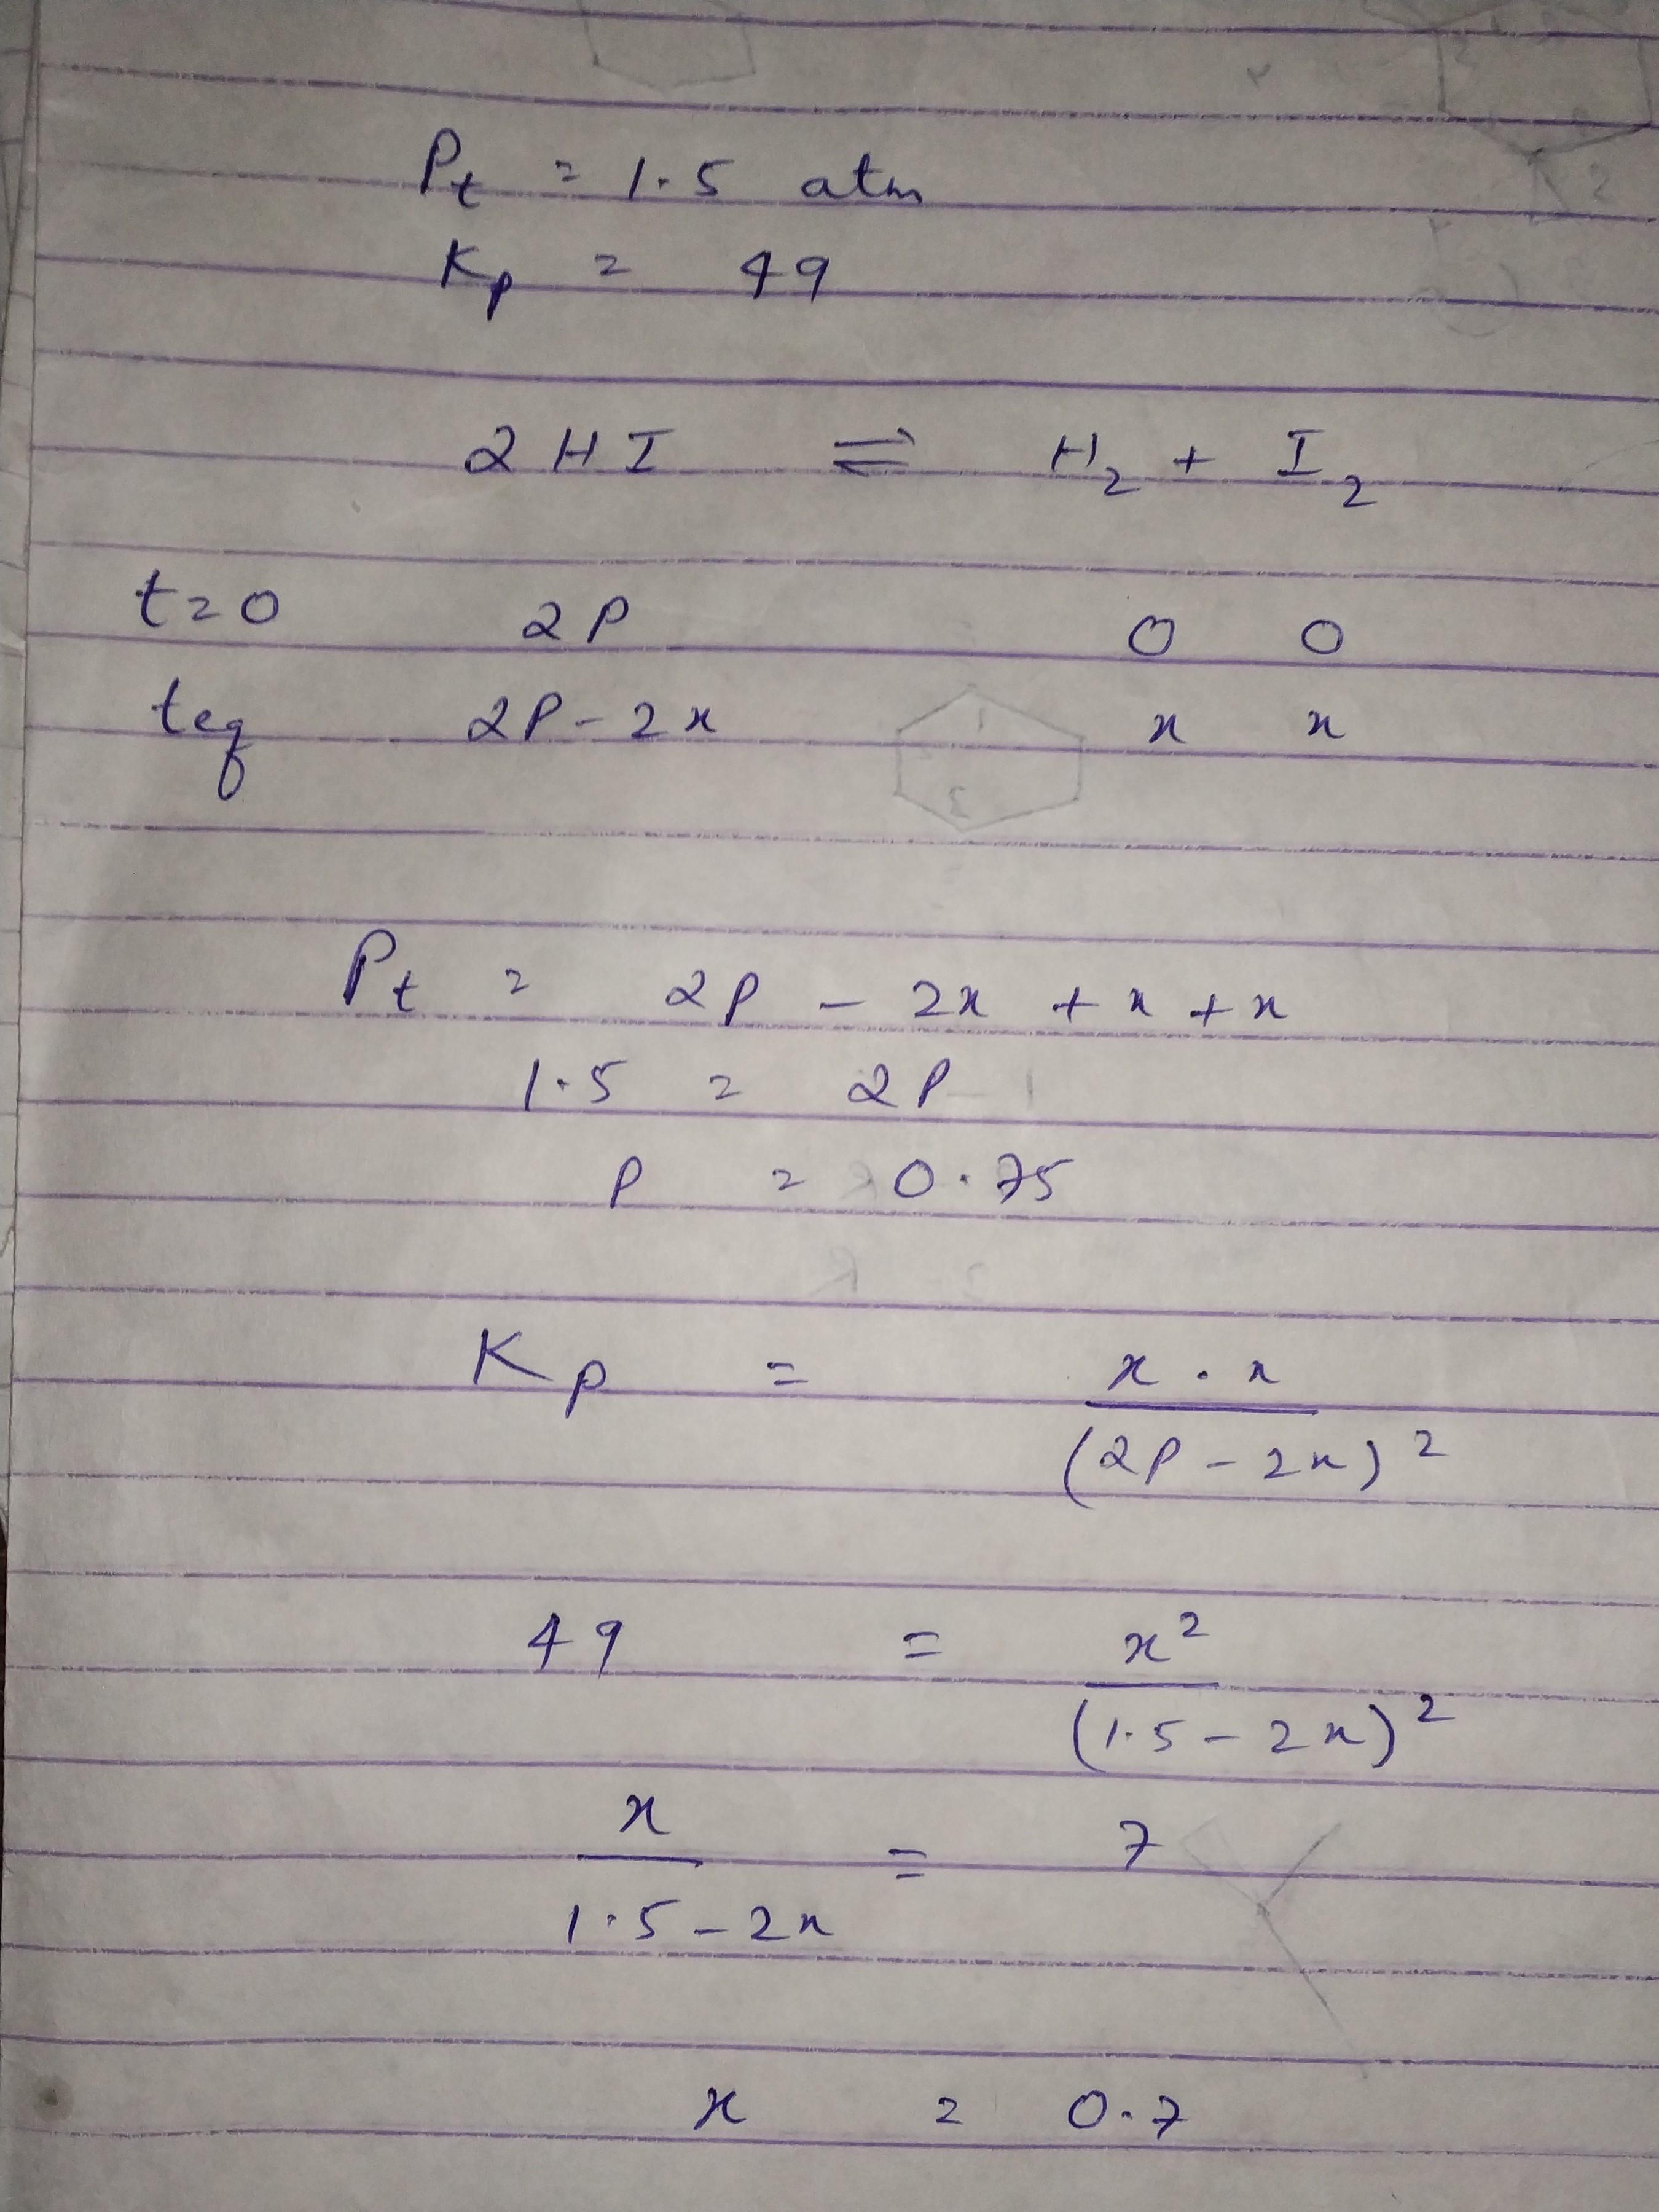 Pt = 1.5 atm
Kp = 49
2HI ⇌ H2 + I2
t=0 2P 0 0
teq 2P-2x x x
Pt = 2P - 2x + x + x
1.5 = 2P
P = 0.75
Kp = x . x
(2P - 2x)²
49 = x²
(1.5 - 2x)²
x = 7
1.5 - 2x
x = 0.7